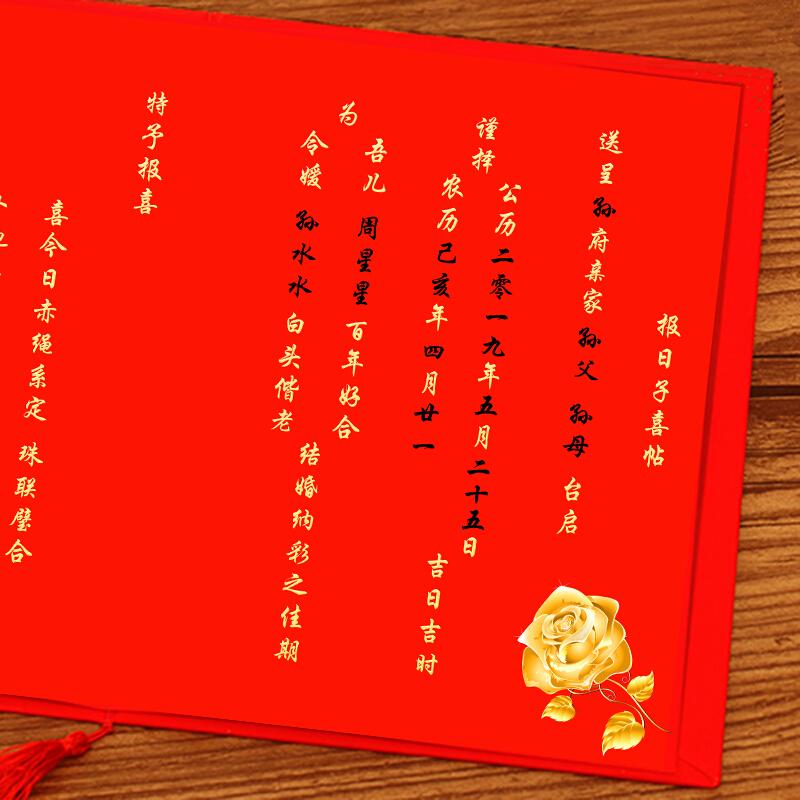 报日子喜帖
送呈孙府亲家孙父 孙母台启
谨择
公历二零一九年五月二十五日
农历己亥年四月廿一
吉日吉时
为
吾儿 周星星 百年好合
令嫒 孙水水 白头偕老
结婚纳彩之佳期
特予报喜
喜今日赤绳系定 珠联璧合